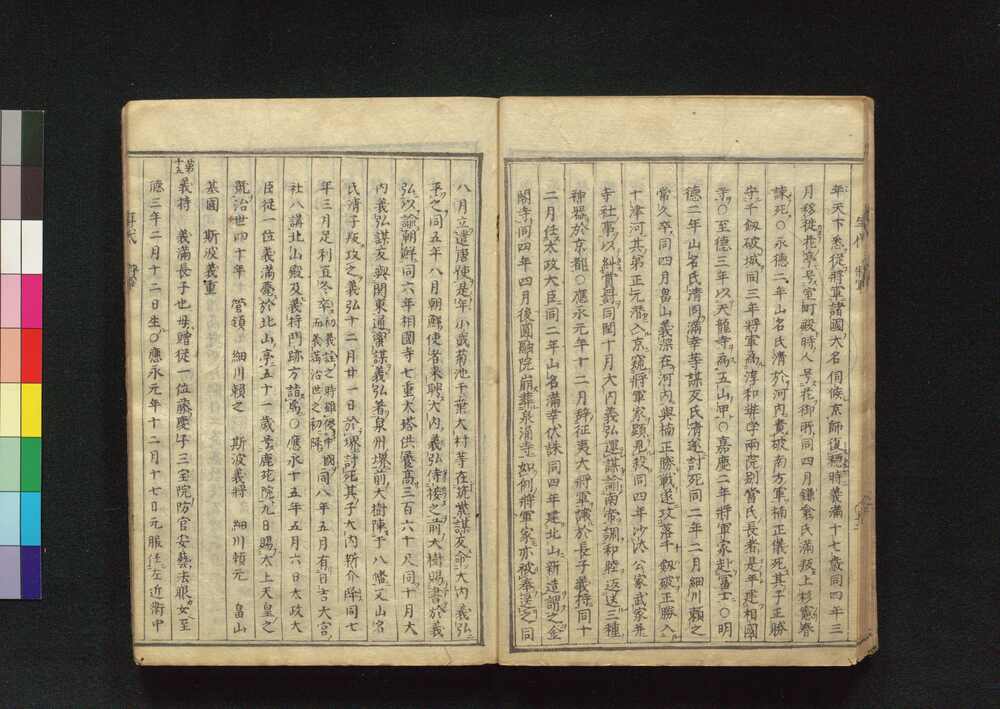 年天下悉從將軍諸國大名伺候京師復穏時義滿十七歳同四年三
月移徙花亭号室町殿時人号花御所同四月鎌倉氏滿殺上杉憲春
諫死〇永德二年山名氏清於河内責破南方軍楠正儀死其子正勝
守千劔破城同三年將軍為淳和奨学兩院別當氏長者是年建相國
寺〇至德三年以天龍寺為五山甲〇嘉慶二年將軍家赴富士〇明
德二年山名氏清同滿幸等謀反氏清遂討死同二年二月細川頼之
常久卒同四月畠山義深在河内與楠正勝戰遂攻落千劔破正勝入
十津河其弟正元潜入京窺將軍家顕見殺同四年沙汰公家武家并
寺社事以糾賞罰同閏十月大内義弘運謀諭南帝調和睦返送三種
神器於京都〇應永元年十二月辞征夷大將軍讓於長子義持同十
二月任太政大臣同二年山名滿幸伏誅同四年建北山新造謂之金
閣寺同四年四月後圓融院崩葬泉涌寺如例將軍家亦被奉送之同
八月立遣唐使是年小貳菊池千葉大村等在筑紫謀反命大内義弘
平之同五年八月朝鮮使者来聘大内義弘侍接之前大樹賜書於義
弘以諭朝鮮同六年相國寺七重大塔供養高三百六十尺同十月大
内義弘謀反與関東通實謀義弘著泉州堺前大樹陳于八幡又山名
氏清子叛攻之義弘十二月廿一日於堺討死其子大内新介降同七
年三月足利直冬卒初義詮之時雖領中國而義滿治世之初降同八年五月有日吉大宮
社八講北山殿及義持門跡方詣焉〇應永十五年五月六日太政大
臣從一位義滿薨於北山亭五十一歳号鹿苑院九日賜太上天皇之
號治世四十年 管領 細川頼之 斯波義將 細川頼元 畠山
基國 斯波義重
第十九 義持 義滿長子也母贈從一位藤慶子三宝院防官安藝法眼女至
德三年二月十二日生〇應永元年十二月十七日元服任左近衛中